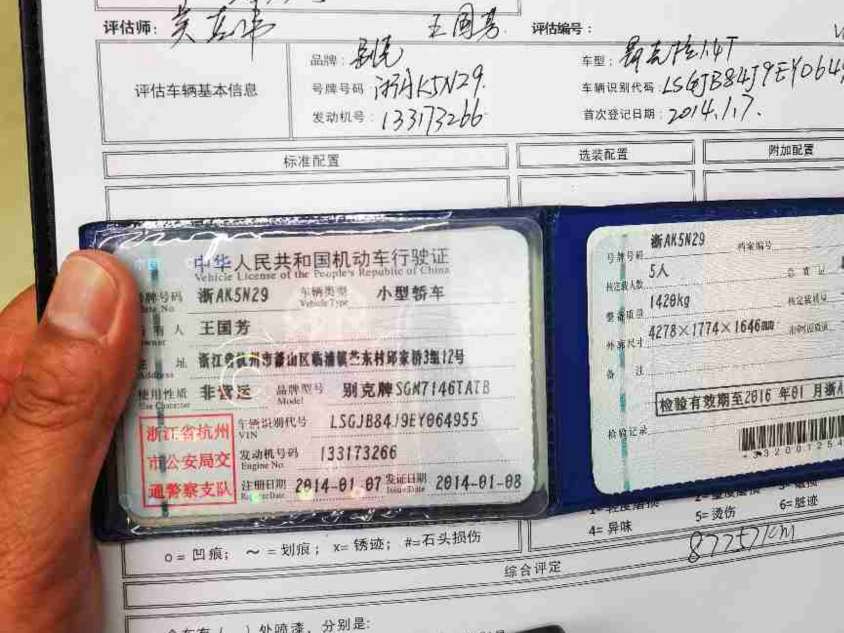 评估师: 王国芳 评估编号:
评估车辆基本信息
品牌: 别克 车型: 1.4T
号牌号码 浙AK5N29. 车辆识别代码: LSGJB84J9EY0649
发动机号: 133173266 首次登记日期: 2014.1.7.
标准配置 选装配置 附加配置
中华人民共和国机动车行驶证
Vehicle License of the People's Republic of China
号牌号码 浙AK5N29 车辆类型 小型轿车
Plate No. Vehicle Type
有人 王国芳
Owner
址 浙江省杭州市萧山区临浦镇苎东村邱家桥3组12号
Address
使用性质 非营运 品牌型号 别克牌SGM7146TATB
Use Character Model
浙江省杭州
市公安局交
通警察支队
车辆识别代号 LSGJB84J9EY064955
VIN
发动机号码 133173266
Engine No.
注册日期 2014-01-07 发证日期 2014-01-08
Register Date Issue Date
号牌号码 浙AK5N29 档案编号
核定载人数 5人 总质量
整备质量 1420kg 核定载质量
外廓尺寸 4278×1774×1646mm
备 注
检验有效期至2016年01月浙A
检验记录
4= 异味 5= 烫伤 6= 胀迹
o = 凹痕; ～ = 划痕; x= 锈迹; #=石头损伤
87757km
综合评定
处喷漆，分别是: